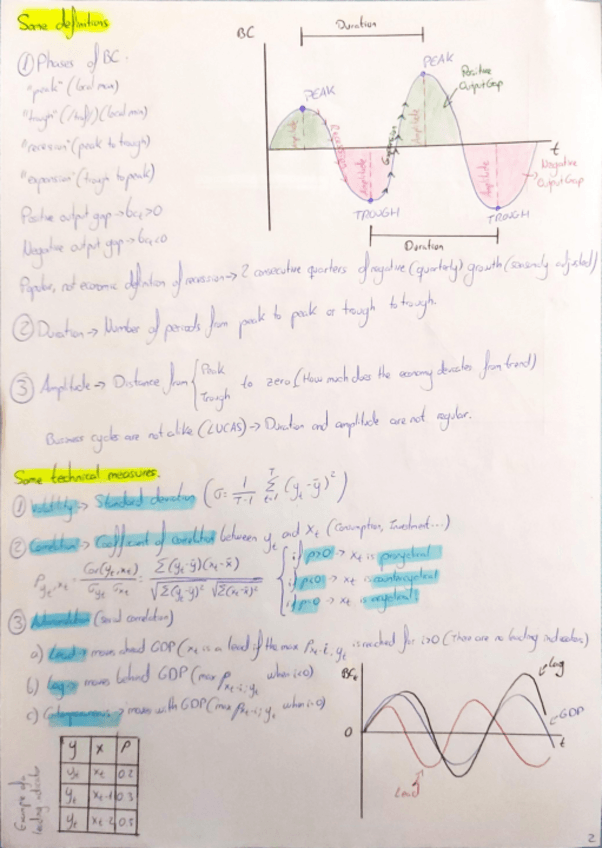 Some definitions
① Phases of BC:
"peak" (local max)
"trough" (/trɒf/) (local min)
"recession" (peak to trough)
"expansion" (trough to peak)
Positive output gap → bct>0
Negative output gap → bct<0
BC
Duration
PEAK
PEAK
Positive Output Gap
Amplitude
Recession
Amplitude
Expansion
Amplitude
Amplitude
t
Negative Output Gap
TROUGH
TROUGH
Duration
Popular, not economic definition of recession → 2 consecutive quarters of negative (quarterly) growth (seasonally adjusted)
② Duration → Number of periods from peak to peak or trough to trough.
③ Amplitude → Distance from { Peak
Trough
to zero (How much does the economy deviates from trend)
Business cycles are not alike (LUCAS) → Duration and amplitude are not regular.
Some technical measures.
① Volatility → Standard deviation (σ = 1/T-1 Σ t=1 T (yt - ȳ)²)
② Correlation → Coefficient of correlation between yt and xt (Consumption, Investment...)
ρ yt,xt = Cov(yt,xt) / σyt σxt = Σ(yt-ȳ)(xt-x̄) / √Σ(yt-ȳ)² √Σ(xt-x̄)²
if ρ>0 → xt is procyclical
if ρ<0 → xt is countercyclical
if ρ=0 → xt is acyclical
③ Autocorrelation (serial correlation)
a) Lead → moves ahead GDP (xt is a lead if the max ρxt-i,yt is reached for i>0 (There are no leading indicators)
b) Lag → moves behind GDP (max ρxt-i,yt when i<0)
c) Contemporaneous → moves with GDP (max ρxt-i,yt when i=0)
BCt
Lag
GDP
0
t
Lead
Example of a leading indicator
y x ρ
yt xt 0.2
yt xt-1 0.3
yt xt-2 0.5
2